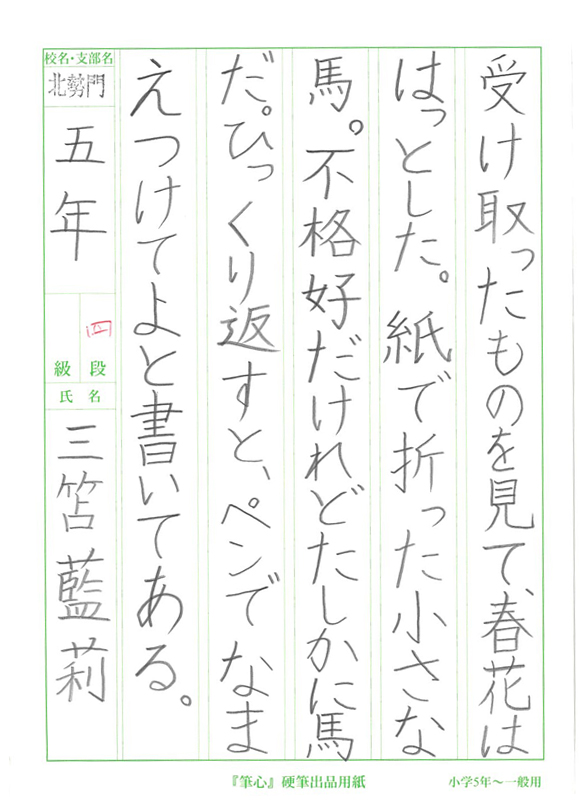 受け取ったものを見て、春花は
はっとした。紙で折った小さな
馬。不格好だけれどたしかに馬
だ。ひっくり返すと、ペンでなま
えつけてよと書いてある。
校名・支部名
北勢門
五年
四
段
級
氏名
三笘藍莉
『筆心』硬筆出品用紙
小学5年～一般用